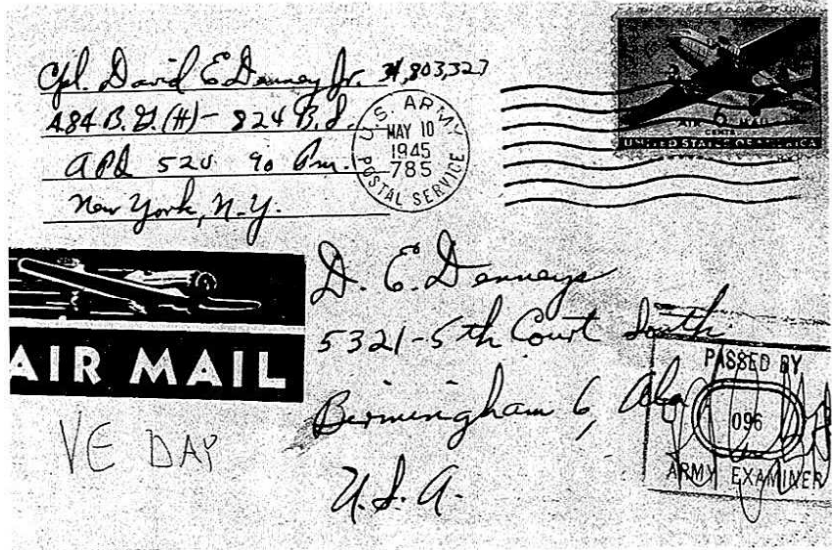 Cpl. David E Denney Jr. 34,803,327
484 B.G.(H) - 824 B.S.
APO 520 % Pm.
New York, N.Y.
U.S. ARMY
MAY 10
1945
785
POSTAL SERVICE
AIR MAIL
6
CENTS
UNITED STATES OF AMERICA
AIR MAIL
VE DAY
D. E. Denneys
5321-5th Court South
Birmingham 6, Ala
U.S.A.
PASSED BY
096
ARMY EXAMINER